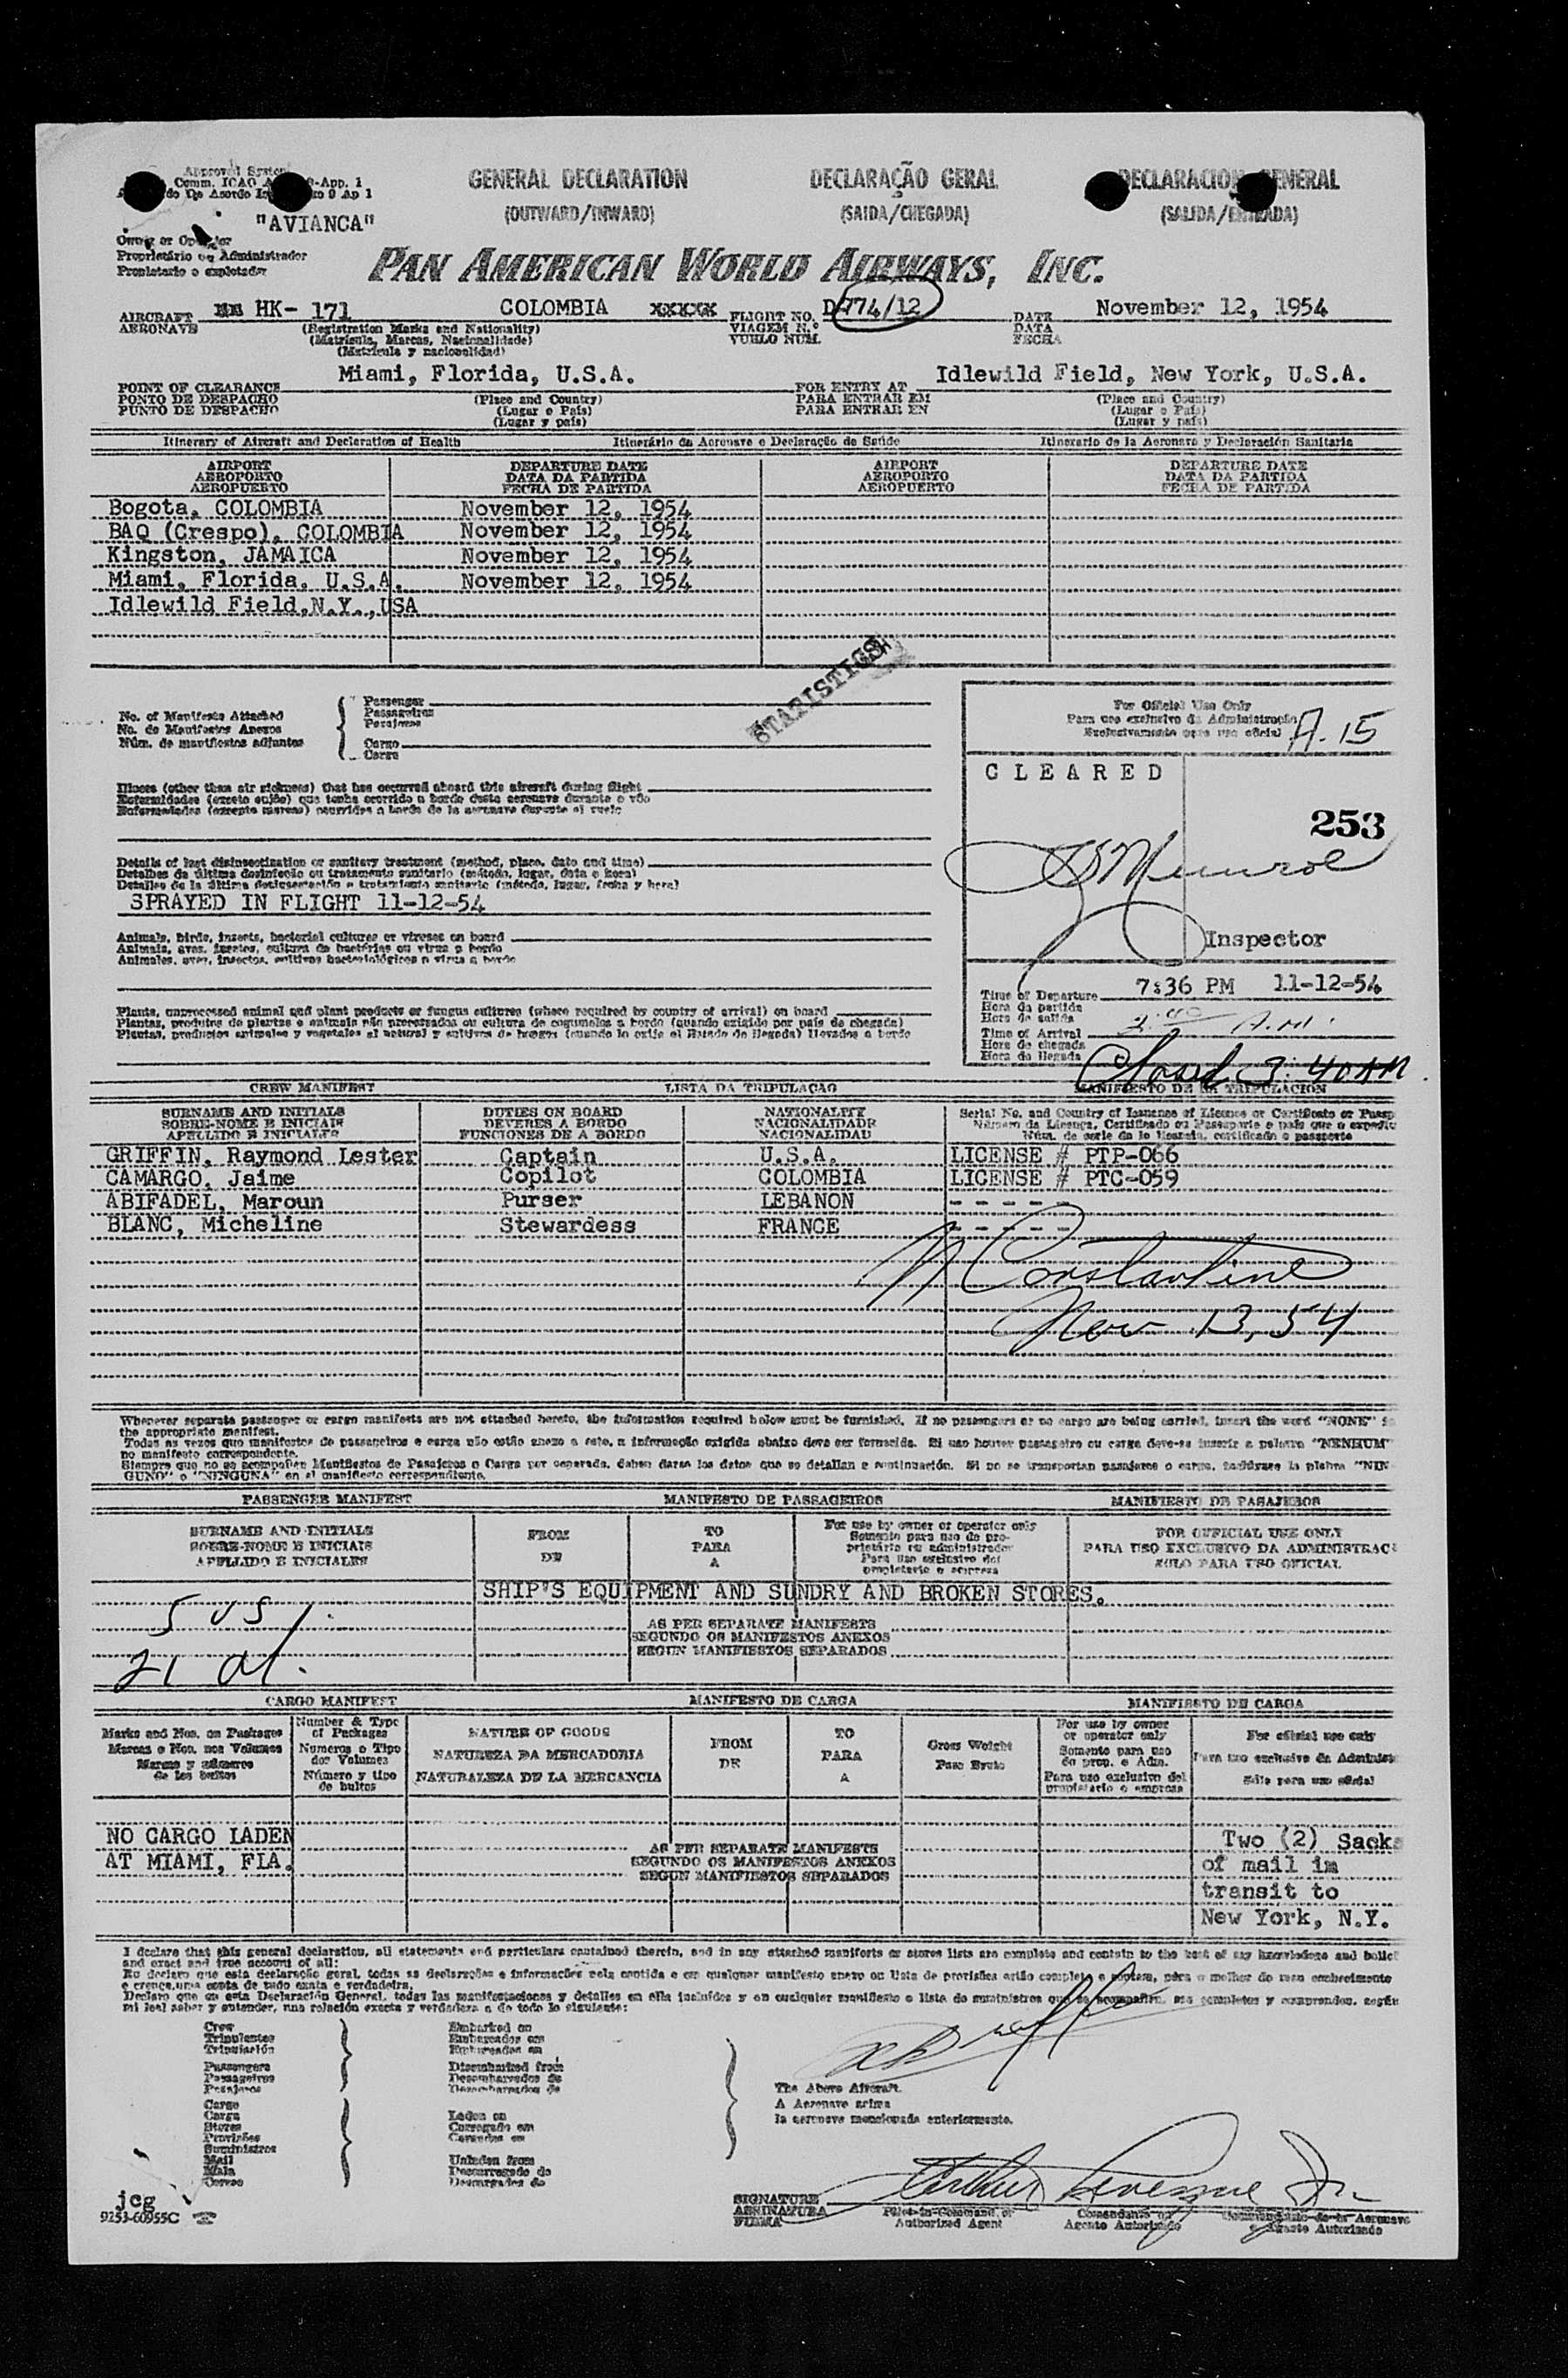 GENERAL DECLARATION
(OUTWARD/INWARD)
DECLARAÇÃO GERAL
(SAIDA/CHEGADA)
DECLARACION GENERAL
(SALIDA/ENTRADA)
"AVIANCA"
Owner or Operator
Proprietário ou Administrador
Propietario o explotador
PAN AMERICAN WORLD AIRWAYS, INC.
AIRCRAFT HK- 171 COLOMBIA XXXXX FLIGHT NO. D-774/12 DATE November 12, 1954
AERONAVE (Registration Marks and Nationality) VIAGEM N.º DATA
(Matricula, Marcas, Nacionalidade) VUELO NUM. FECHA
(Matricula y nacionalidad)
POINT OF CLEARANCE Miami, Florida, U.S.A. FOR ENTRY AT Idlewild Field, New York, U.S.A.
PONTO DE DESPACHO (Place and Country) PARA ENTRAR EM (Place and Country)
PUNTO DE DESPACHO (Lugar e País) PARA ENTRAR EN (Lugar e País)
(Lugar y país) (Lugar y país)
Itinerary of Aircraft and Declaration of Health Itinerário da Aeronave e Declaração de Saúde Itinerario de la Aeronave y Declaración Sanitaria
AIRPORT DEPARTURE DATE AIRPORT DEPARTURE DATE
AEROPORTO DATA DA PARTIDA AEROPORTO DATA DA PARTIDA
AEROPUERTO FECHA DE PARTIDA AEROPUERTO FECHA DE PARTIDA
Bogota, COLOMBIA November 12, 1954
BAQ (Crespo), COLOMBIA November 12, 1954
Kingston, JAMAICA November 12, 1954
Miami, Florida, U.S.A. November 12, 1954
Idlewild Field,N.Y.,USA
STATISTICS
No. of Manifests Attached
No. de Manifestos Anexos
Núm. de manifiestos adjuntos
Passenger
Passageiros
Pasajeros
Cargo
Carga
For Official Use Only
Para uso exclusivo da Administração
Exclusivamente para uso oficial
A. 15
CLEARED
253
Inspector
Illness (other than air sickness) that has occurred aboard this aircraft during flight
Enfermidades (exceto enjôo) que tenha ocorrido a bordo desta aeronave durante o vôo
Enfermedades (excepto mareos) ocurridas a bordo de la aeronave durante el vuelo
Details of last disinsectization or sanitary treatment (method, place, date and time)
Detalhes da última desinfeção ou tratamento sanitario (método, lugar, data e hora)
Detalles de la última desinsectación o tratamiento sanitario (método, lugar, fecha y hora)
SPRAYED IN FLIGHT 11-12-54
Animals, birds, insects, bacterial cultures or viruses on board
Animais, aves, insetos, cultura de bactérias ou virus a bordo
Animales, aves, insectos, cultivos bacteriológicos o virus a bordo
Plants, unprocessed animal and plant products or fungus cultures (where required by country of arrival) on board
Plantas, produtos de plantas e animais não processados ou cultura de cogumelos a bordo (quando exigido por país de chegada)
Plantas, productos animales y vegetales al natural y cultivos de hongos (cuando lo exija el Estado de llegada) llevados a bordo
Time of Departure 7:36 PM 11-12-54
Hora da partida
Hora de salida
Time of Arrival 2:00 A.M.
Hora de chegada
Hora de llegada
Closed 3:40AM
CREW MANIFEST LISTA DA TRIPULAÇAO MANIFIESTO DE LA TRIPULACION
SURNAME AND INITIALS DUTIES ON BOARD NATIONALITY Serial No. and Country of Issuance of Licence or Certificate or Passp
SOBRE-NOME E INICIAIS DEVERES A BORDO NACIONALIDADE
APELLIDO E INICIALES FUNCIONES DE A BORDO NACIONALIDAD
GRIFFIN, Raymond Lester Captain U.S.A. LICENSE # PTP-066
CAMARGO, Jaime Copilot COLOMBIA LICENSE # PTC-059
ABIFADEL, Maroun Purser LEBANON - - - - -
BLANC, Micheline Stewardess FRANCE - - - - -
Constantine
Nov 13, 54
Whenever separate passenger or cargo manifests are not attached hereto, the information required below must be furnished. If no passengers or no cargo are being carried, insert the word "NONE"
the appropriate manifest.
Todas as vezes que manifestos de passageiros e carga não estão anexo a este, a informação exigida abaixo deve ser fornecida. Si nao houver passageiro ou carga deve-se inserir a palavra "NENHUM"
no manifesto correspondente.
Siempre que no se acompañen Manifiestos de Pasajeros o Carga por separado, deben darse los datos que se detallan a continuación. Si no se transportan pasajeros o carga,
GUNO" o "NINGUNA" en el manifiesto correspondiente.
PASSENGER MANIFEST MANIFESTO DE PASSAGEIROS MANIFIESTO DE PASAJEROS
SURNAME AND INITIALS FROM TO For use by owner or operator only FOR OFFICIAL USE ONLY
SOBRE-NOME E INICIAIS DE PARA PARA USO EXCLUSIVO DA ADMINISTRAC
APELLIDO E INICIALES A SOLO PARA USO OFICIAL
SHIP'S EQUIPMENT AND SUNDRY AND BROKEN STORES.
5 US
21 al.
AS PER SEPARATE MANIFESTS
SEGUNDO OS MANIFESTOS ANEXOS
SEGUN MANIFIESTOS SEPARADOS
CARGO MANIFEST MANIFESTO DE CARGA MANIFIESTO DE CARGA
Marks and Nos. on Packages
Marcas e Nos. nos Volumes
Marcas y números
de los bultos
Number & Type
of Packages
Numeros o Tipo
dos Volumes
Número y tipo
de bultos
NATURE OF GOODS
NATUREZA DA MERCADORIA
NATURALEZA DE LA MERCANCIA
FROM
DE
TO
PARA
A
Gross Weight
Peso Bruto
For use by owner
or operator only
Somente para uso
do prop. e Adm.
Para uso exclusivo del
propietario o empresa
For official use only
Para uso exclusivo da Administ
Sólo para uso oficial
NO CARGO LADEN
AT MIAMI, FLA.
AS PER SEPARATE MANIFESTS
SEGUNDO OS MANIFESTOS ANEXOS
SEGUN MANIFIESTOS SEPARADOS
Two (2) Sacks
of mail in
transit to
New York, N.Y.
I declare that this general declaration, all statements and particulars contained therein, and in any attached manifests or stores lists are complete and contain to the best of my knowledge and belief
and exact and true account of all:
Crew
Tripulantes
Tripulación
Passengers
Passageiros
Pasajeros
Cargo
Carga
Stores
Provisões
Suministros
Mail
Mala
Correo
Embarked on
Embarcados em
Embarcados en
Disembarked from
Desembarcados de
Desembarcados de
Laden on
Carregado em
Cargados en
Unladen from
Descarregado de
Descargados de
The Above Aircraft.
A Aeronave acima
la aeronave mencionada anteriormente.
SIGNATURE
ASSINATURA
FIRMA
Pilot-in-Command or
Authorized Agent
Comandante ou
Agente Autorizado
Comandante de la Aeronave
o Agente Autorizado
jcg
9253-60955C